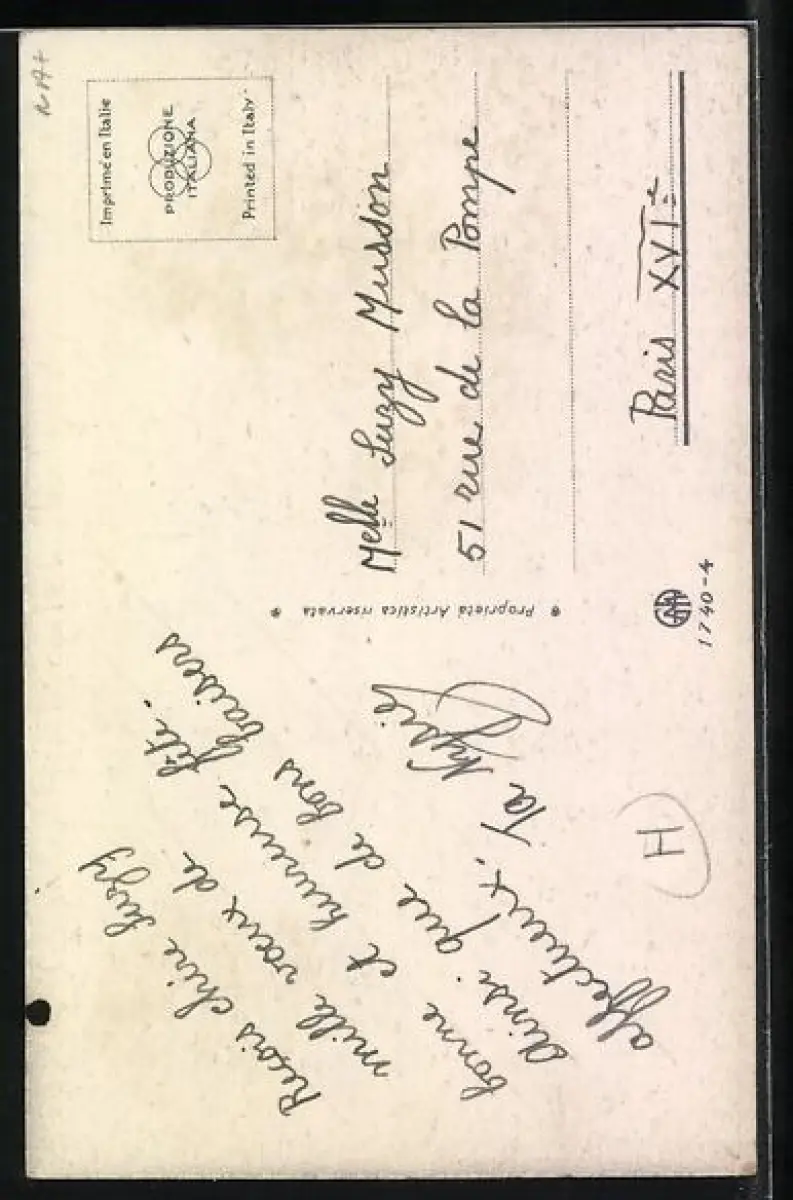 Reçois chère Suzy
mille vœux de
bonne et heureuse fête.
Ainsi que de bons baisers
affectueux. Ta
Proprietá Artistica riservata
1740-4
H
Imprimé en Italie
PRODUZIONE
ITALIANA
Printed in Italy
Melle Suzy Musson
51 rue de la Pompe
Paris XVIe